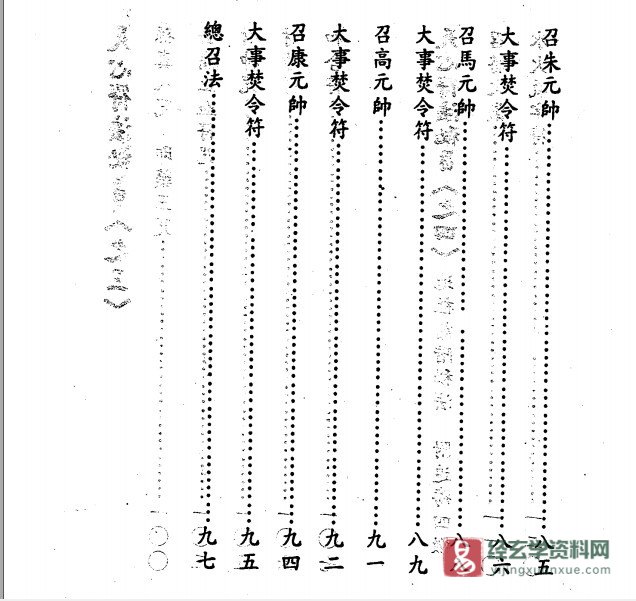 召朱元帥 八五
大事焚令符 八六
召馬元帥 八
大事焚令符 八九
召高元帥 九一
大事焚令符 九二
召康元帥 九四
大事焚令符 九五
總召法 九七
易
经玄学资料网
yijingxuanxue.com